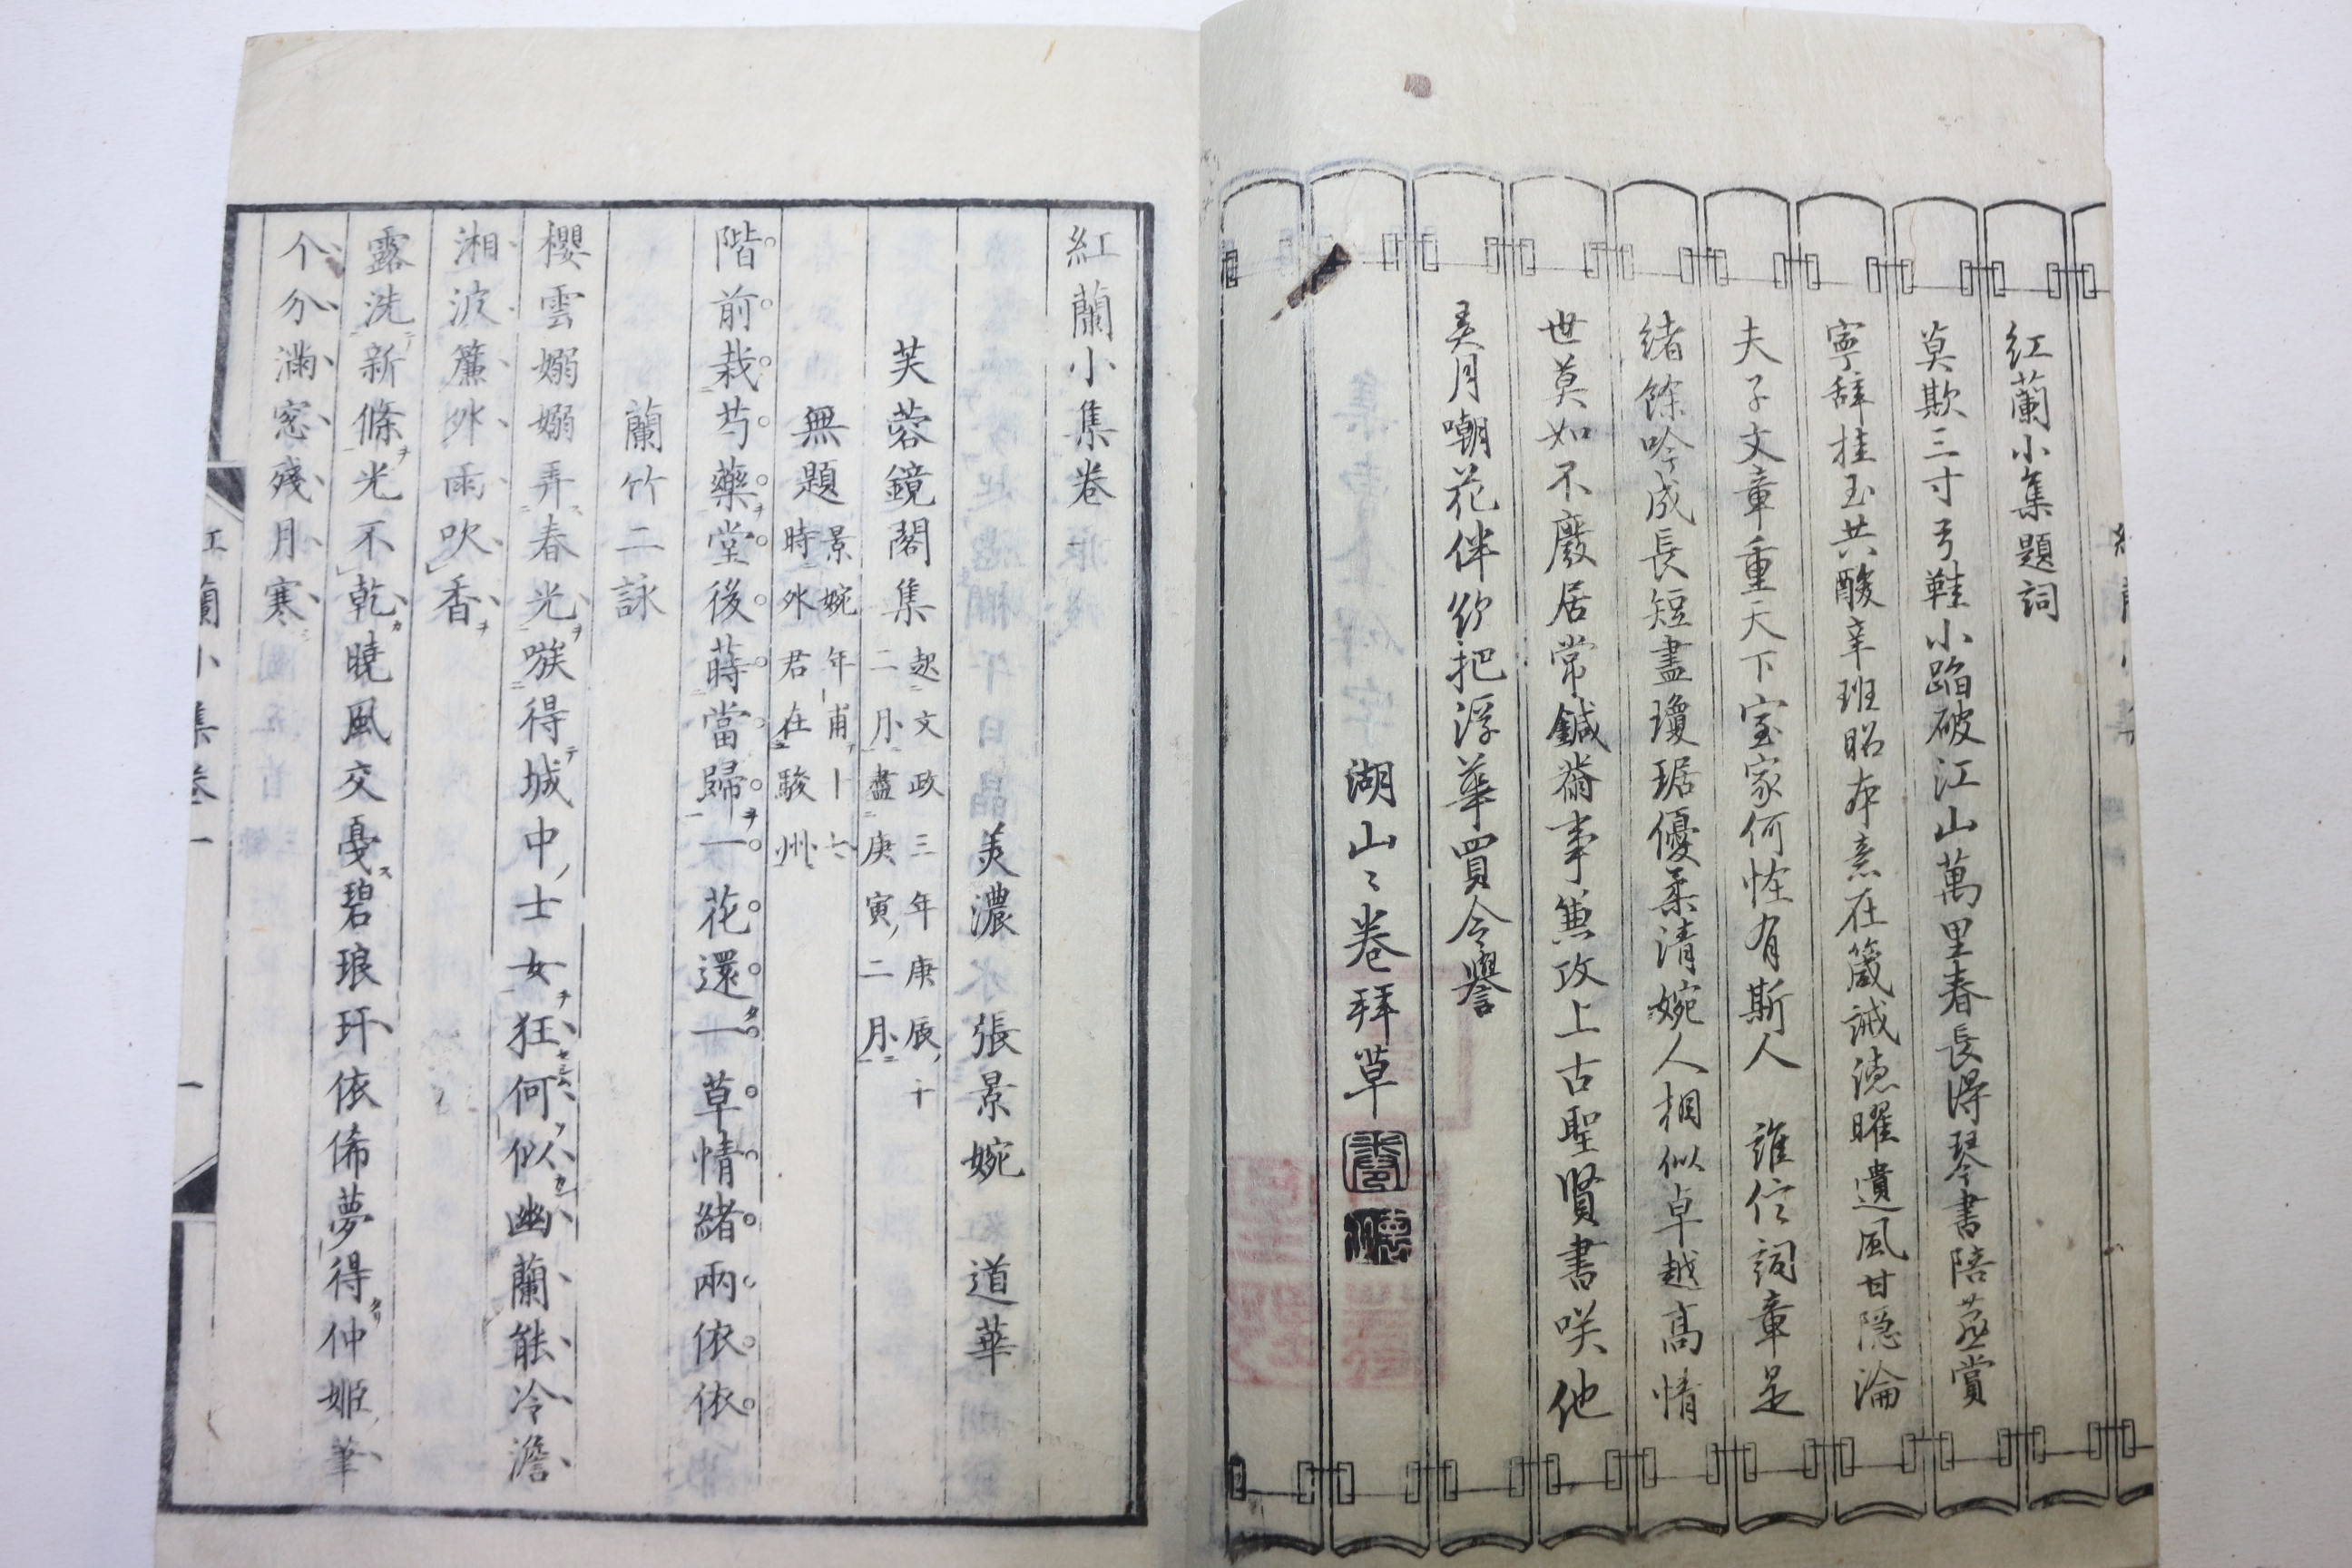 紅蘭小集題詞
莫欺三寸弓鞋小踏破江山萬里春長得琴書陪燕賞
寧辭桂玉共酸辛班昭本意在箴誡德曜遺風甘隠淪
夫子文章重天下室家何怪有斯人 誰信詞章是
緒餘吟成長短盡瓊琚優柔清婉人相似卓越高情
世莫如不廢居常鍼黹事兼攻上古聖賢書咲他
美月嘲花伴紗把浮華買令譽
湖山〻卷拜草
紅蘭小集卷一
美濃 張景婉 道華
芙蓉鏡閣集 起文政三年庚辰十
二月盡庚寅二月
無題 景婉年甫十七
時外君在駿州
階前栽芍藥堂後蒔當歸一花還一草情緒兩依依
蘭竹二詠
櫻雲嫋嫋弄春光嗾得城中士女狂何似幽蘭能冷澹
湘波簾外雨吹香
露洗新條光不乾曉風交戛碧琅玕依俙夢得仲姬筆
个分滿窓殘月寒
紅蘭小集卷一 一